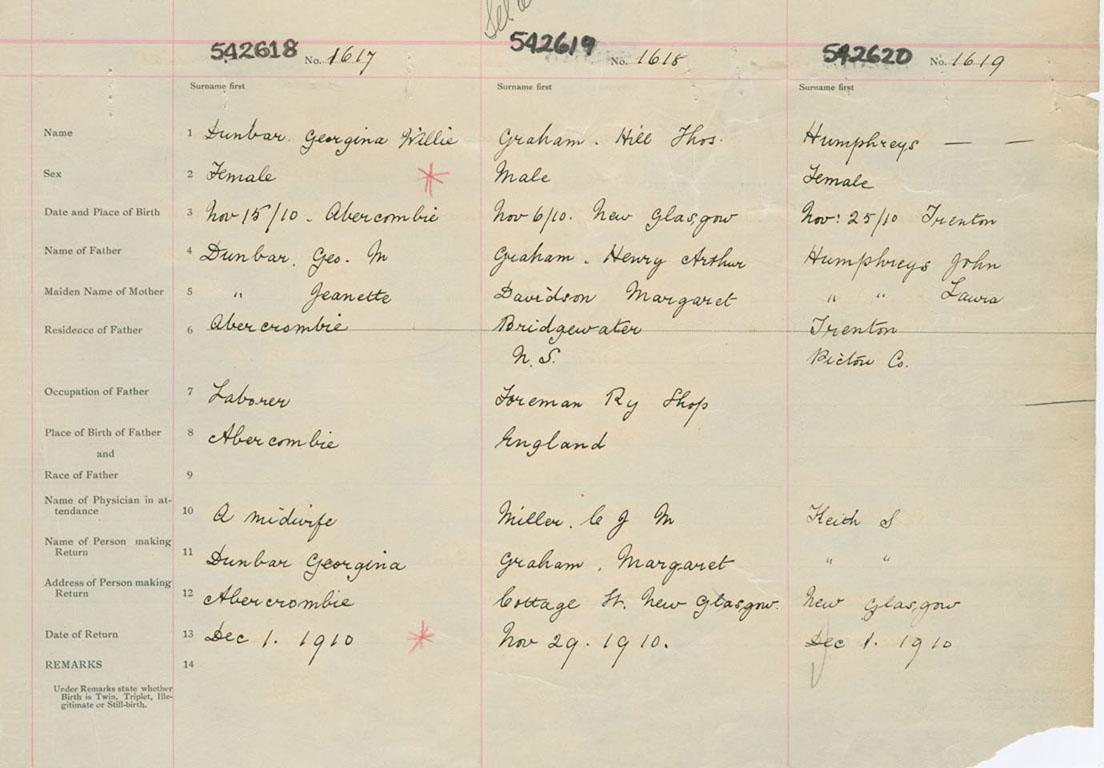 542618 No. 1617 542619 No. 1618 542620 No. 1619
Surname first Surname first Surname first
Name 1 Dunbar. Georgina Willie Graham. Hill Thos. Humphreys — —
Sex 2 Female Male Female
Date and Place of Birth 3 Nov 15/10 - Abercombie Nov 6/10. New Glasgow Nov: 25/10 Trenton
Name of Father 4 Dunbar. Geo. M Graham. Henry Arthur Humphreys John
Maiden Name of Mother 5 " Jeanette Davidson Margaret " " Laura
Residence of Father 6 Abercrombie Bridgewater Trenton
N.S. Pictou Co.
Occupation of Father 7 Laborer Foreman Ry Shop
Place of Birth of Father 8 Abercombie England
and
Race of Father 9
Name of Physician in at-
tendance 10 A midwife Miller. C J M Keith S
Name of Person making
Return 11 Dunbar Georgina Graham, Margaret " "
Address of Person making
Return 12 Abercrombie Cottage St. New Glasgow. New Glasgow
Date of Return 13 Dec 1. 1910 Nov 29. 1910. Dec 1. 1910
REMARKS 14
Under Remarks state whether
Birth is Twin, Triplet, Ille-
gitimate or Still-birth.